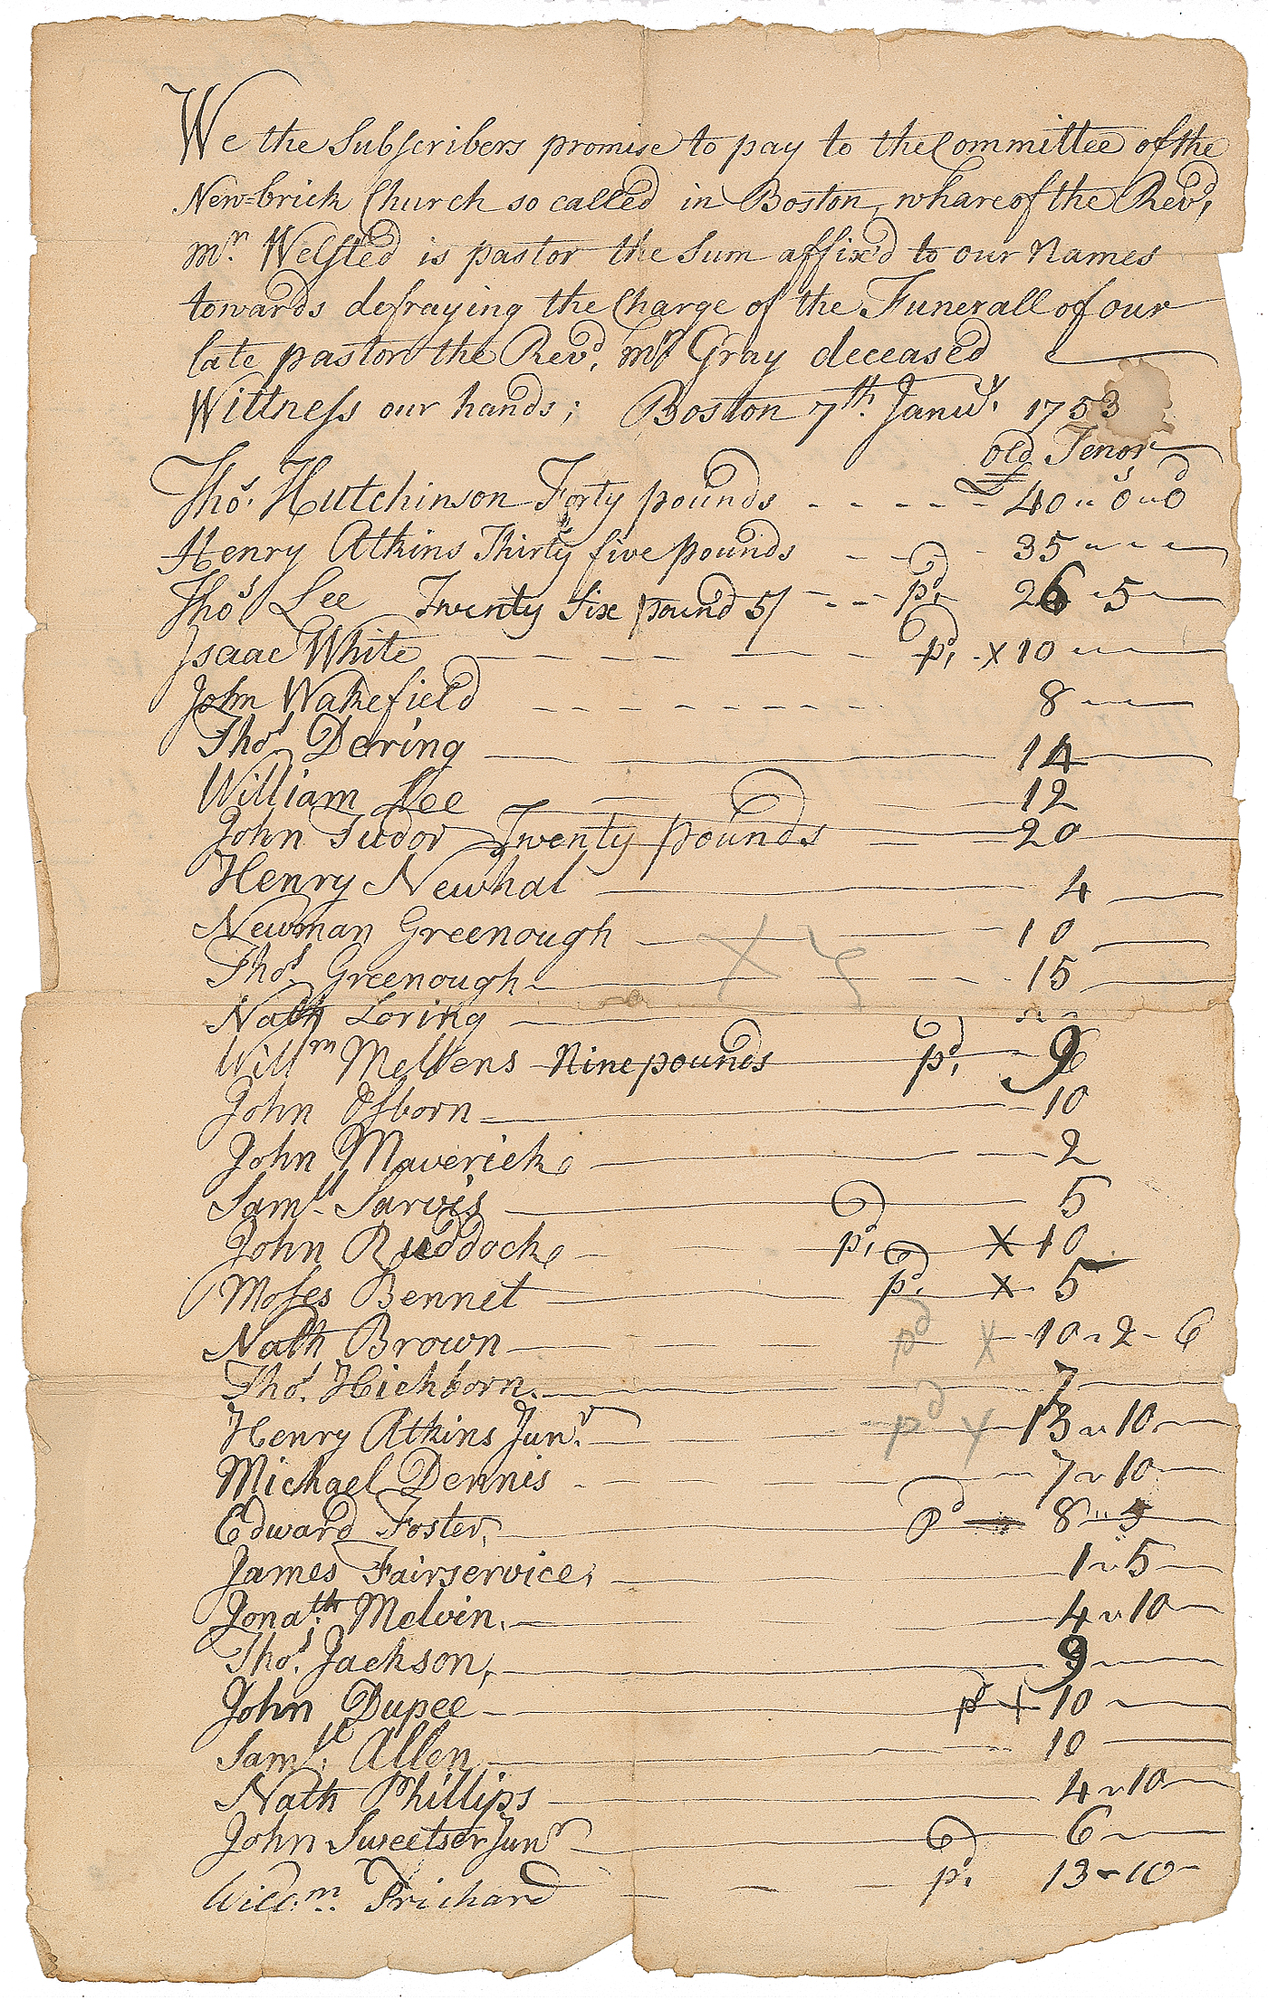 We the Subscribers promise to pay to the Committee of the
New=brick Church so called in Boston, whare of the Revd,
mr. Welsted is pastor the Sum affix'd to our Names
towards defraying the Charge of the Funerall of our
late pastor the Revd, mr Gray deceased
Wittness our hands; Boston 7th. Janu.y 1753
old Tenor
Thos. Hutchinson Forty pounds - - - - - £ 40 " 0s " 0d
Henry Atkins Thirty five pounds - - - 35 " - -
Thos Lee Twenty Six pound 5/ - - pd, 26 " 5 -
Isaac White - - - - - pd, - x 10 - -
John Wakefield - - - - - - - - 8 - -
Thos Dering 14
William Lee 12
John Tudor Twenty pounds 20
Henry Newhal 4
Newman Greenough 10
Thos Greenough 15
Nath Loring
Willm Mellens Nine pounds pd, 9
John Osborn 10
John Maverick 2
Samll. Jarvis 5
John Ruddock pd, x 10
Moses Bennet pd, x 5
Nath Brown pd x 10 " 2 - 6
Thos. Hichborn. 7
Henry Atkins Junr. pd x 13 " 10
Michael Dennis 7 " 10
Edward Foster, pd 8 " 5
James Fairservice, 1 " 5
Jonath. Melvin, 4 " 10
Thos. Jackson, 9
John Dupee pd x 10
Samll. Allen 10
Nath Phillips 4 " 10
John Sweetser Junr pd 6
Will:m. Prichard pd, 13 - 10